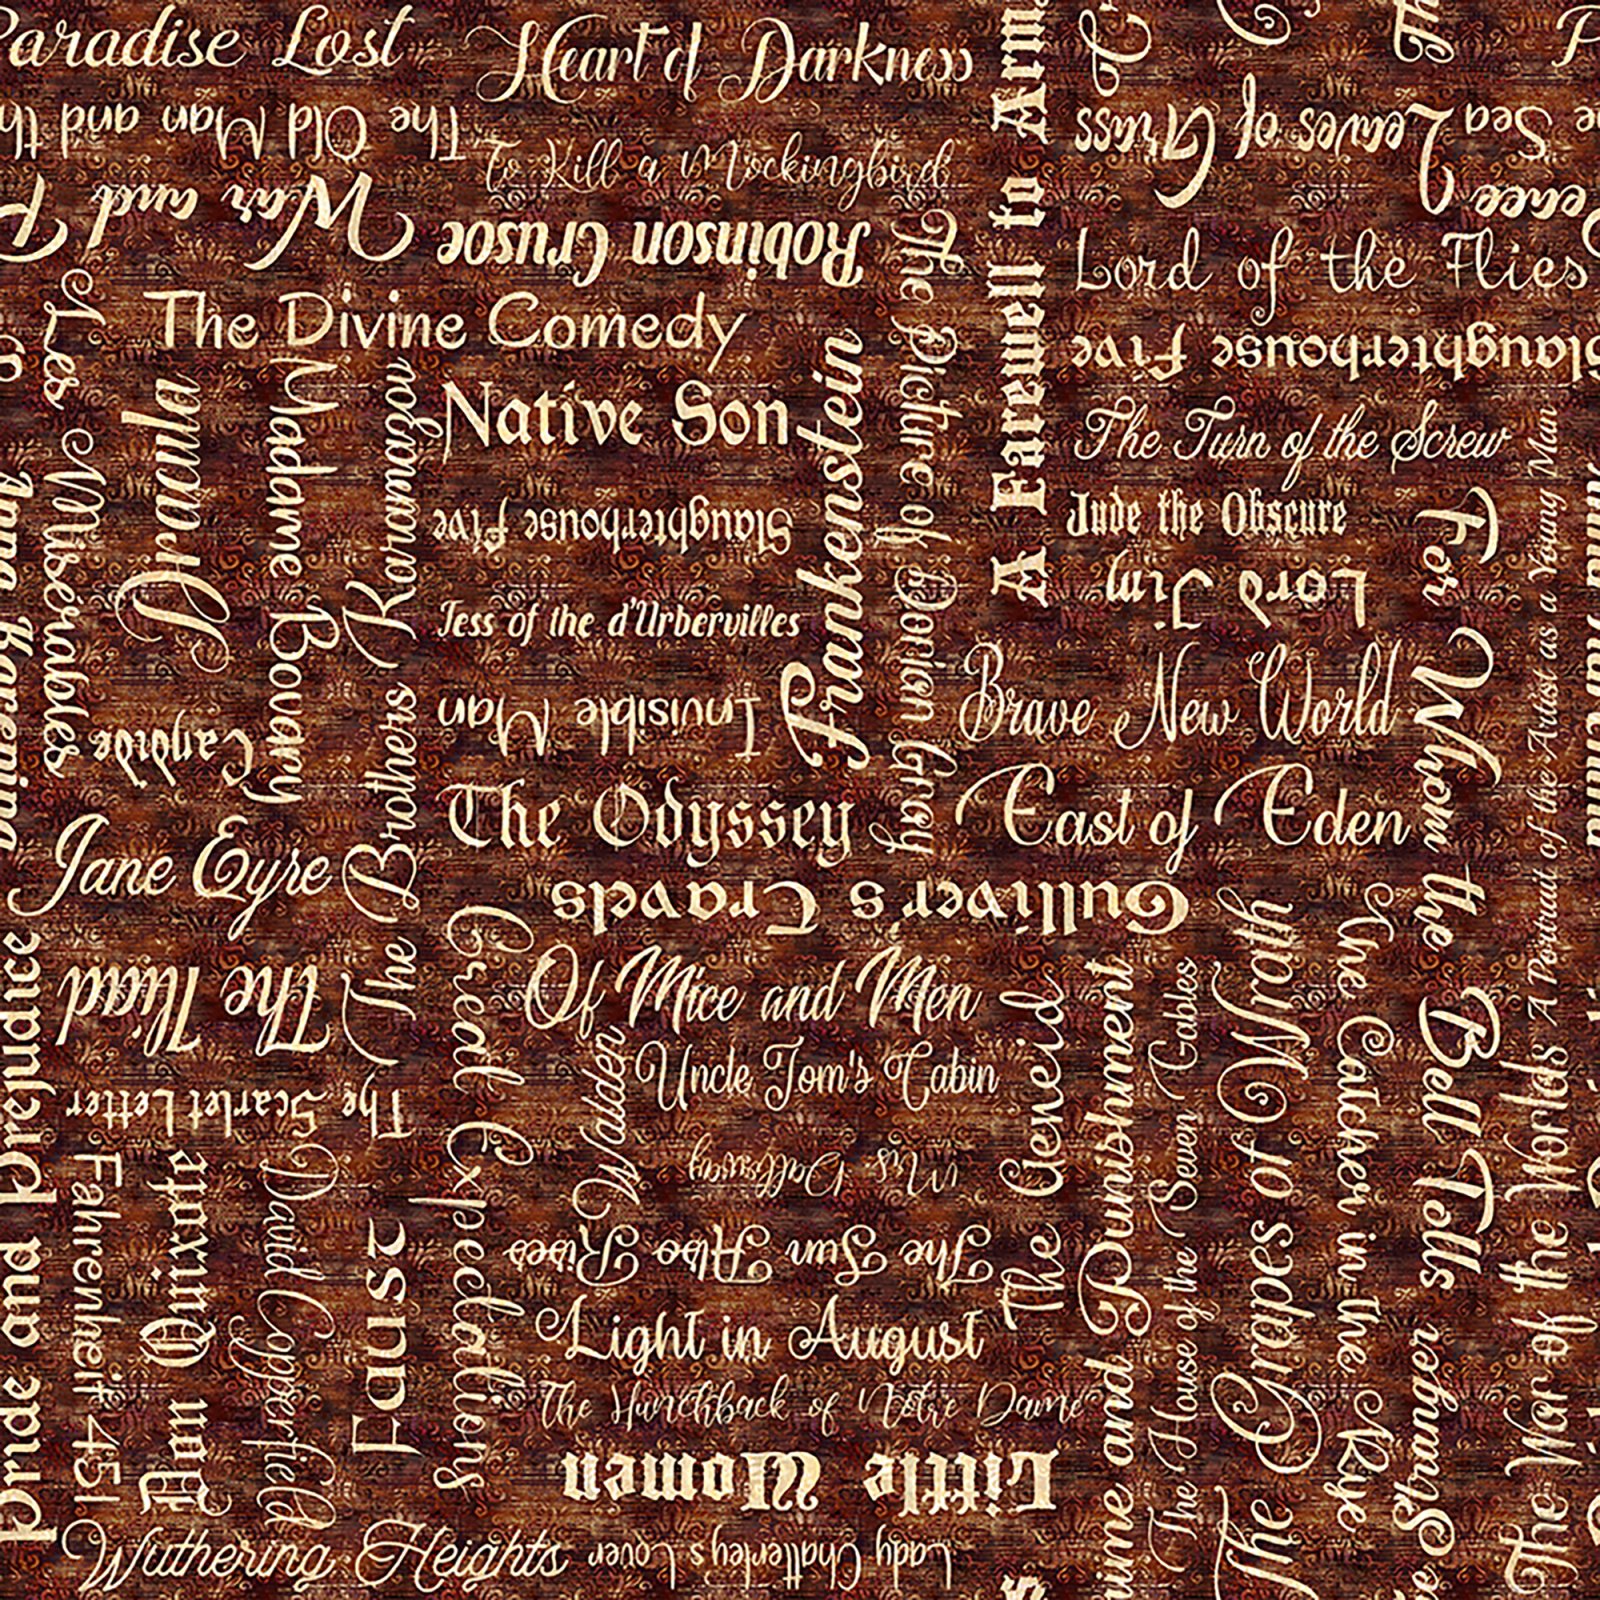 Paradise Lost
Heart of Darkness
The Old Man and th
To Kill a Mockingbird
A Farewell to Arm
Leaves of Grass
Sea
War and P
Peace
Robinson Crusoe
The Picture of Dorian Gray
Lord of the Flies
Les Misérables
The Divine Comedy
Slaughterhouse Five
Dracula
Madame Bovary
The Brothers Karamazov
Native Son
Frankenstein
The Turn of the Screw
Slaughterhouse Five
Jude the Obscure
For Whom the Bell Tolls
A Portrait of the Artist as a Young Man
Lord Jim
Tess of the d'Urbervilles
Invisible Man
Brave New World
Candide
The Odyssey
East of Eden
Jane Eyre
Gulliver's Travels
Great Expectations
Of Mice and Men
The Iliad
Pride and Prejudice
Walden
Uncle Tom's Cabin
The Aeneid
rime and Punishment
The House of the Seven Gables
The Grapes of Wrath
The Catcher in the Rye
The War of the Worlds
The Scarlet Letter
Mrs. Dalloway
Fahrenheit 451
Don Quixote
David Copperfield
Faust
The Sun Also Rises
Light in August
The Hunchback of Notre Dame
Little Women
Wuthering Heights
Lady Chatterley's Lover